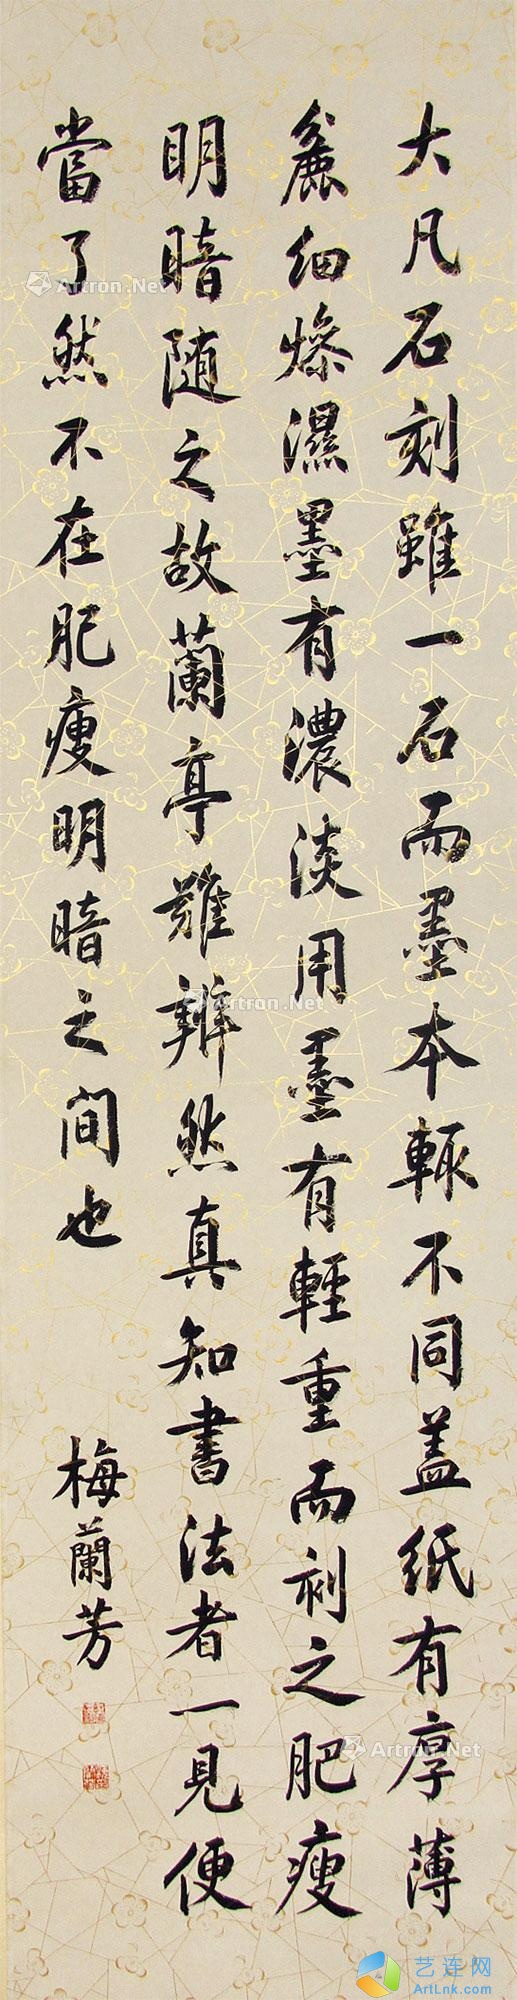 大凡石刻雖一石而墨本輒不同蓋紙有厚薄
麄細燥濕墨有濃淡用墨有輕重而刻之肥瘦
明暗随之故蘭亭難辨然真知書法者一見便
當了然不在肥瘦明暗之间也
梅蘭芳
Artron.Net
Artron.Net
Artron.Net
艺连网
ArtLnk.com